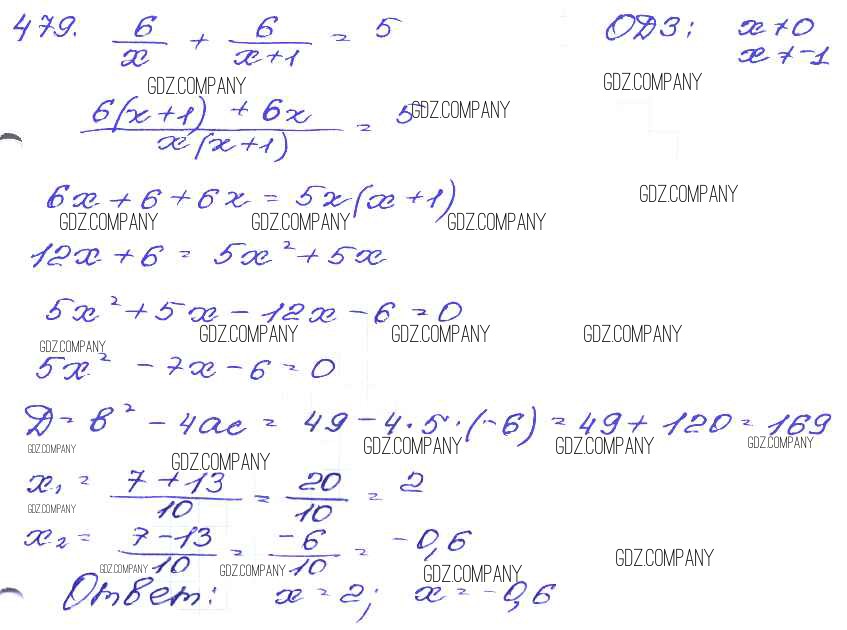 479. 6/x + 6/(x+1) = 5 ОДЗ: x ≠ 0
x ≠ -1
GDZ.COMPANY GDZ.COMPANY
(6(x+1) + 6x)/(x(x+1)) = 5 GDZ.COMPANY
6x + 6 + 6x = 5x(x+1) GDZ.COMPANY
GDZ.COMPANY GDZ.COMPANY GDZ.COMPANY
12x + 6 = 5x² + 5x
5x² + 5x - 12x - 6 = 0
GDZ.COMPANY GDZ.COMPANY GDZ.COMPANY GDZ.COMPANY
5x² - 7x - 6 = 0
Д = в² - 4ac = 49 - 4·5·(-6) = 49 + 120 = 169
GDZ.COMPANY GDZ.COMPANY GDZ.COMPANY GDZ.COMPANY GDZ.COMPANY
x₁ = (7 + 13)/10 = 20/10 = 2
GDZ.COMPANY
x₂ = (7 - 13)/10 = -6/10 = -0,6
GDZ.COMPANY GDZ.COMPANY GDZ.COMPANY GDZ.COMPANY
Ответ: x = 2; x = -0,6